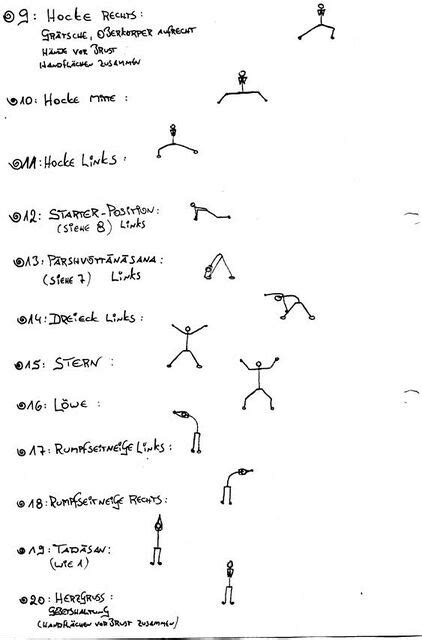 09: HOCKE RECHTS:
GRÄTSCHE, OBERKÖRPER AUFRECHT
HÄNDE VOR BRUST
HANDFLÄCHEN ZUSAMMEN
10: HOCKE MITTE :
11: HOCKE LINKS :
12: STARTER-POSITION:
(SIEHE 8) LINKS
13: PARSHVOTTĀNĀSANA:
(SIEHE 7) LINKS
14: DREIECK LINKS:
15: STERN :
16: LÖWE :
17: RUMPFSEITNEIGE LINKS :
18: RUMPFSEITNEIGE RECHTS:
19: TADĀSAN:
(WIE 1)
20: HERZGRUSS:
GEBETSHALTUNG
(HANDFLÄCHEN VOR BRUST ZUSAMMEN)